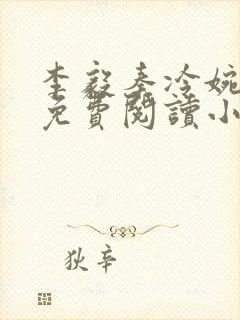 李毅秦冷婉
免費閱讀小
狄辛